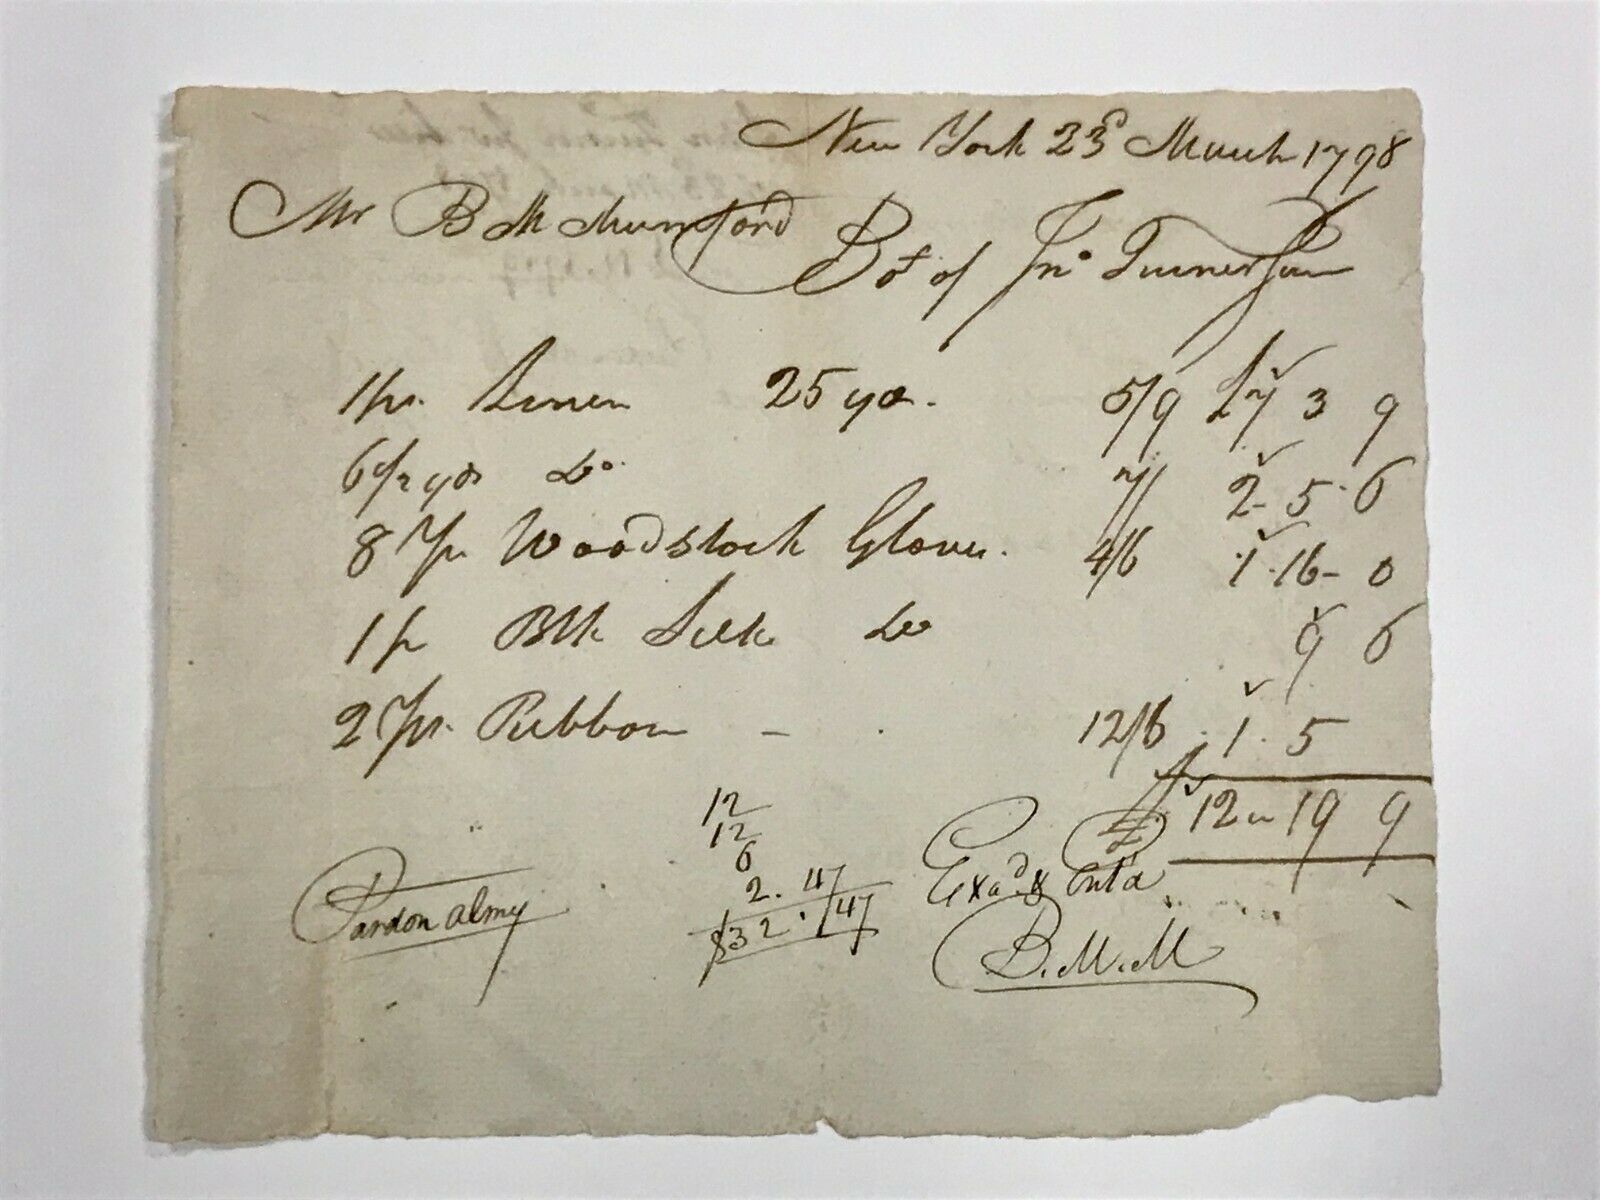 New York 23d March 1798
Mr B M Mumford
Bot of Jno Turner Jun
1 ps. Linen 25 yds. 5/9 £7 3 9
6 1/2 yds Do 7/ 2 - 5 - 6
8 pr Woodstock Gloves. 4/6 1 - 16 - 0
1 pr Blk Silk Do 9 6
2 ps. Ribbon - 12/6 1 - 5
£ 12 " 19 9
12
12
6
2. 47
$32. 47
Exad & Entd
Pardon Almy
B. M. M